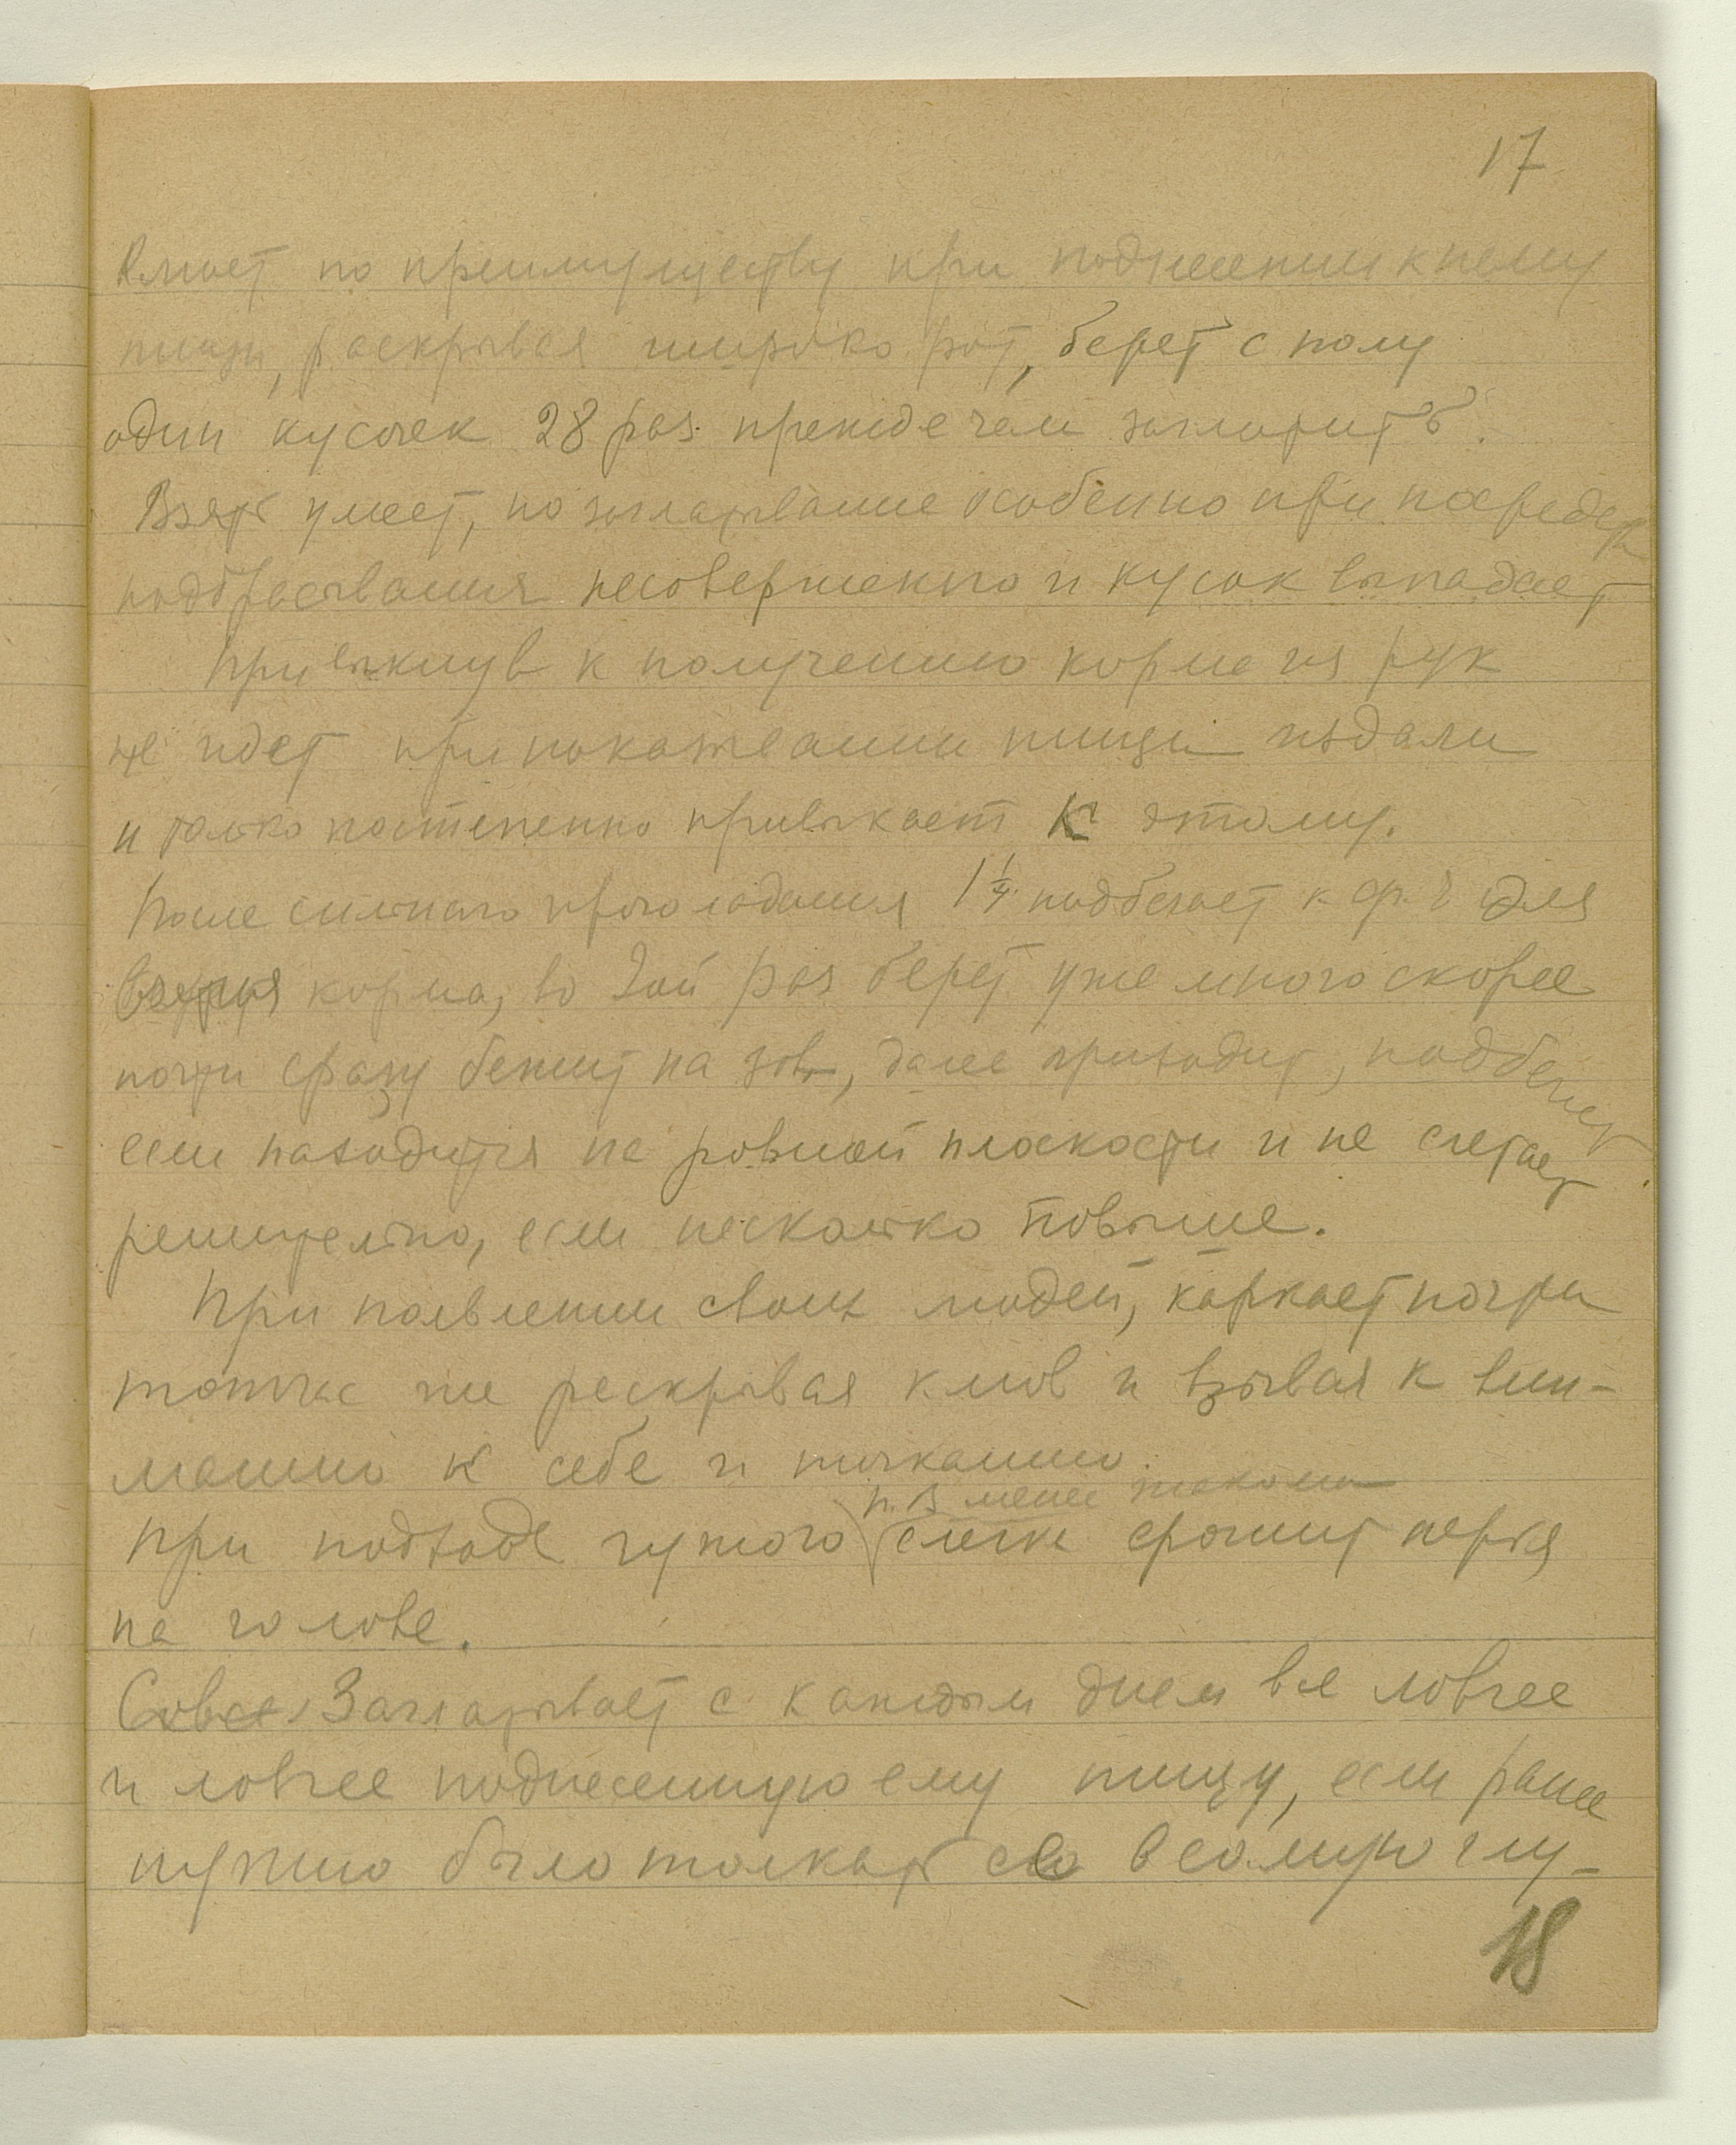 17
по преимуществу при поднесении к нему
пищи, раскрывая широко рот, берет с полу
один кусочек 28 раз прежде чем заглотить.
Взять умеет, но заглатывание особенно при посредст
подбрасывания несовершенно и кусок выпадает
Привыкнув к получению корма из рук
не идет при показывании пищи издали
и только постепенно привыкает к этому.
После сильного проголодания 1 1/4 подбегает к для
взятия корма, во 2ой раз берет уже много скорее
почти сразу бежит на зов, далее приходит, подбегает
если находится на ровной плоскости и не слетает
решительно, если несколько повыше.
При появлении своих людей, каркает почти
тотчас же раскрывая клюв и взывая к вни-
манию к себе и тыканию.
менее знакомы
При подходе чужого слегка ерошит перья
на голове.
Заглатывает с каждым днем все ловчее
и ловчее поднесенную ему пищу, если ранее
нужно было толкать ее в самую глу-
18